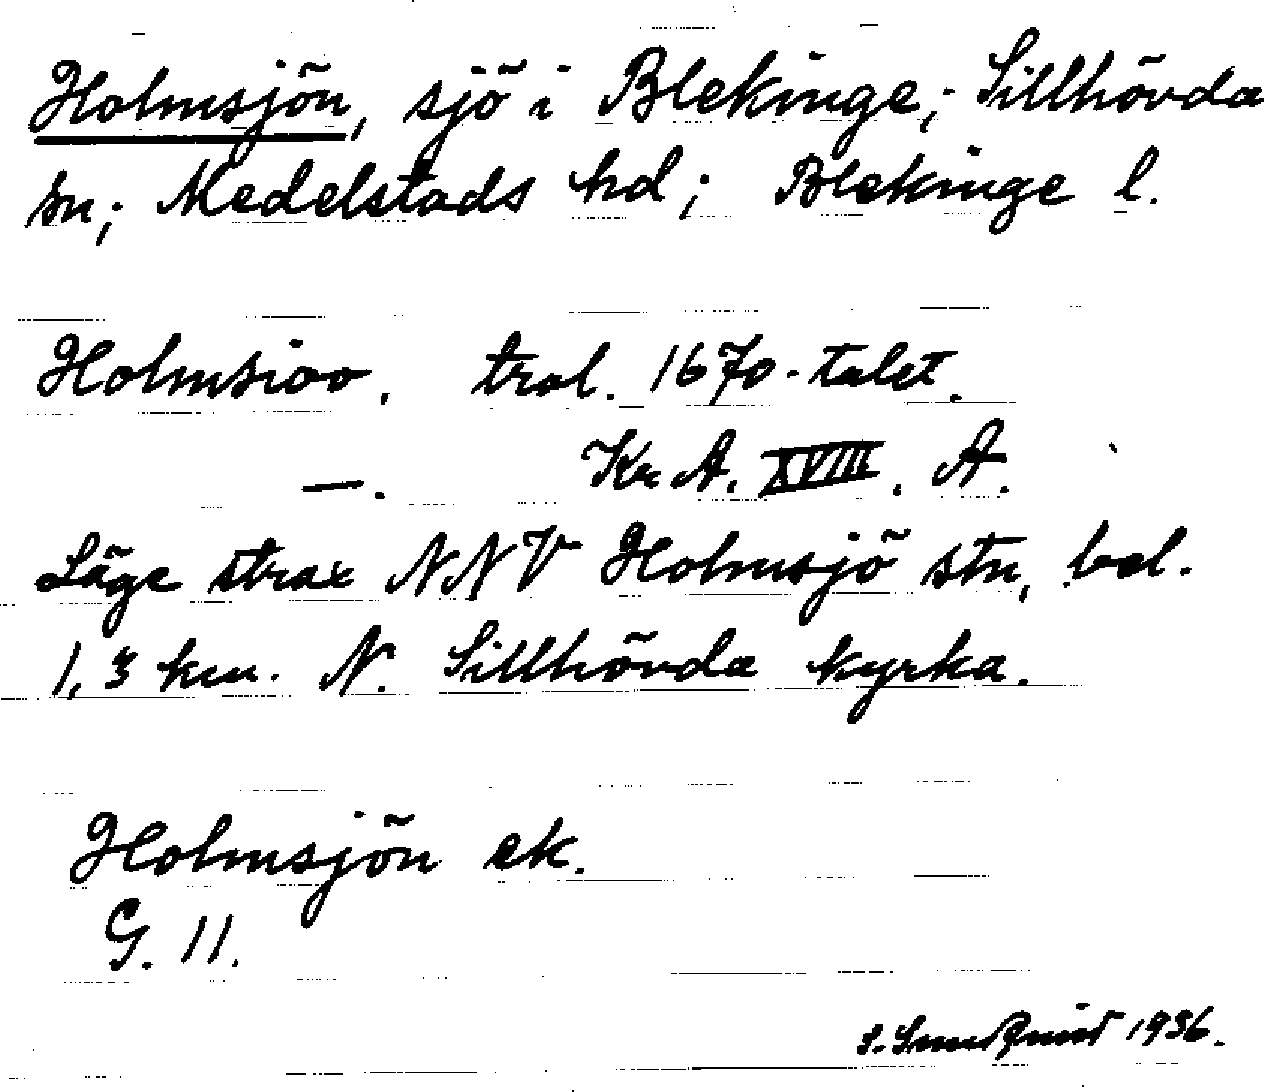 Holmsjön, sjö i Blekinge; Sillhövda
sn; Medelstads hd; Blekinge l.
Holmsioo. trol. 1670-talet.
—. Kr A. XVIII. A.
Läge strax NNV Holmsjö stn, bel.
1,3 km. N. Sillhövda kyrka.
Holmsjön ek.
G. 11.
1936.